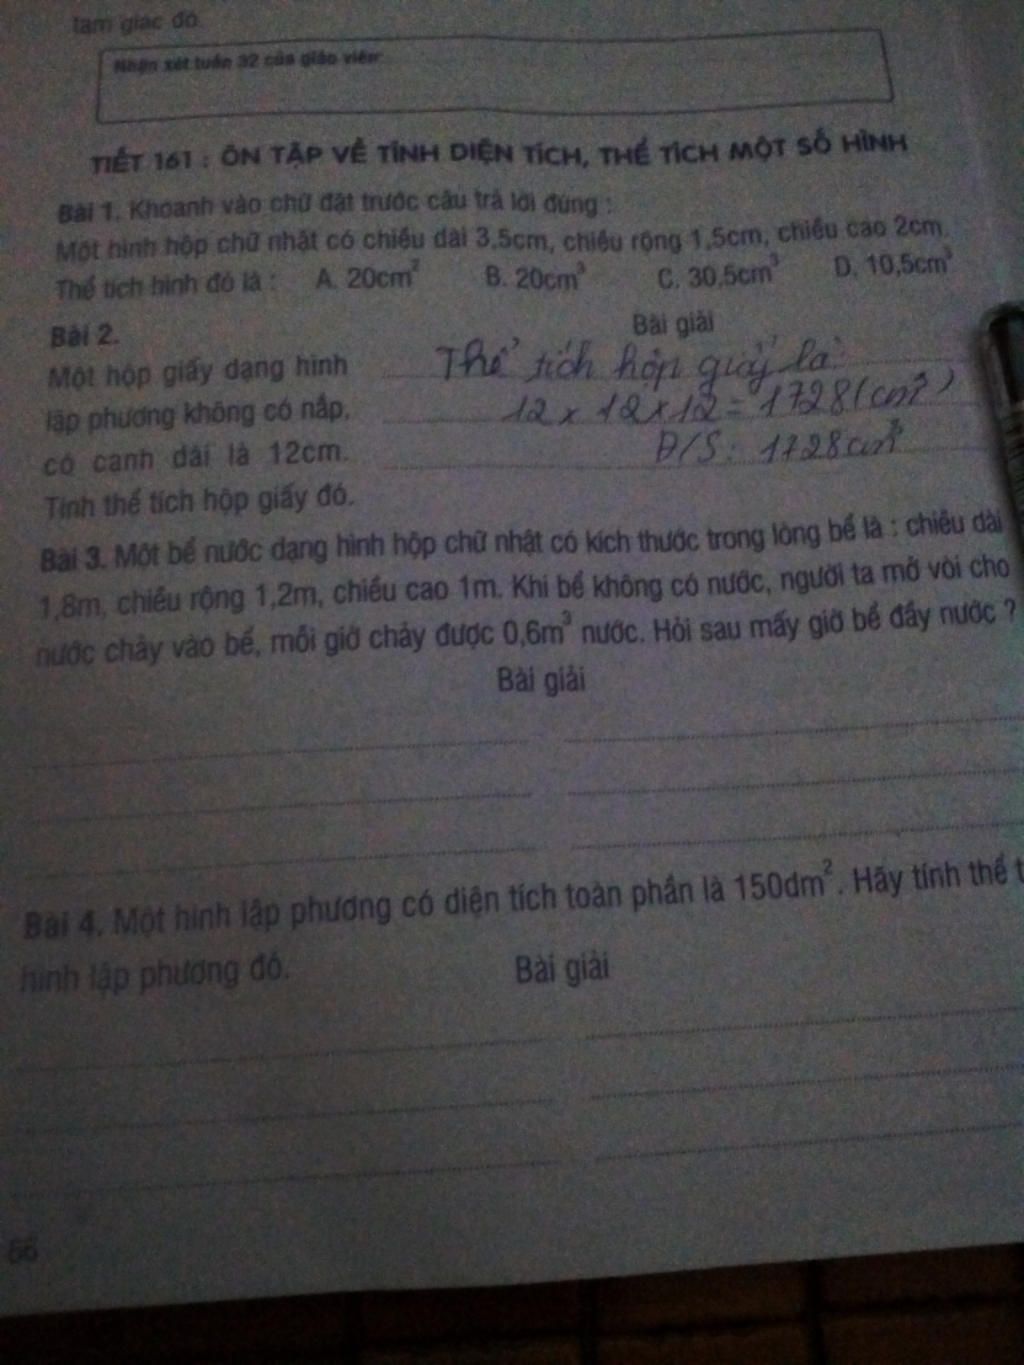 tam giác đó.
Nhận xét tuần 32 của giáo viên:
TIẾT 161 : ÔN TẬP VỀ TÍNH DIỆN TÍCH, THỂ TÍCH MỘT SỐ HÌNH
Bài 1. Khoanh vào chữ đặt trước câu trả lời đúng :
Một hình hộp chữ nhật có chiều dài 3,5cm, chiều rộng 1,5cm, chiều cao 2cm.
Thể tích hình đó là : A. 20cm² B. 20cm³ C. 30,5cm³ D. 10,5cm³
Bài 2.
Một hộp giấy dạng hình
lập phương không có nắp,
có cạnh dài là 12cm.
Tính thể tích hộp giấy đó.
Bài giải
Thể tích hộp giấy là:
12 x 12 x 12 = 1728 (cm³)
Đ/S : 1728 cm³
Bài 3. Một bể nước dạng hình hộp chữ nhật có kích thước trong lòng bể là : chiều dài
1,8m, chiều rộng 1,2m, chiều cao 1m. Khi bể không có nước, người ta mở vòi cho
nước chảy vào bể, mỗi giờ chảy được 0,6m³ nước. Hỏi sau mấy giờ bể đầy nước ?
Bài giải
Bài 4. Một hình lập phương có diện tích toàn phần là 150dm². Hãy tính thể t
hình lập phương đó.
Bài giải
66